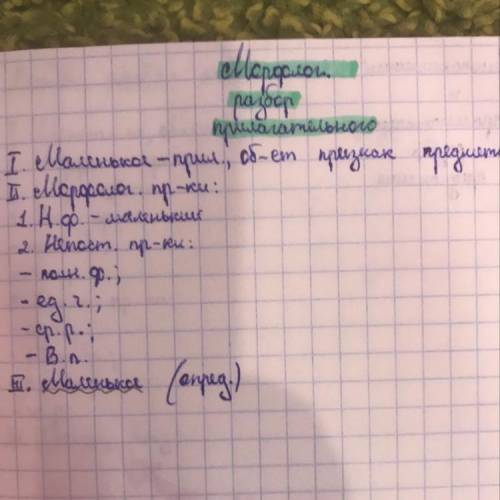 Морфолог.
разбор
прилагательного
I. Маленькое – прил., об-ет признак предмета
II. Морфолог. пр-ки:
1. Н.ф. – маленький
2. Непост. пр-ки:
– полн. ф.;
– ед. ч.;
– ср. р.;
– В.п.
III. Маленькое (опред.)